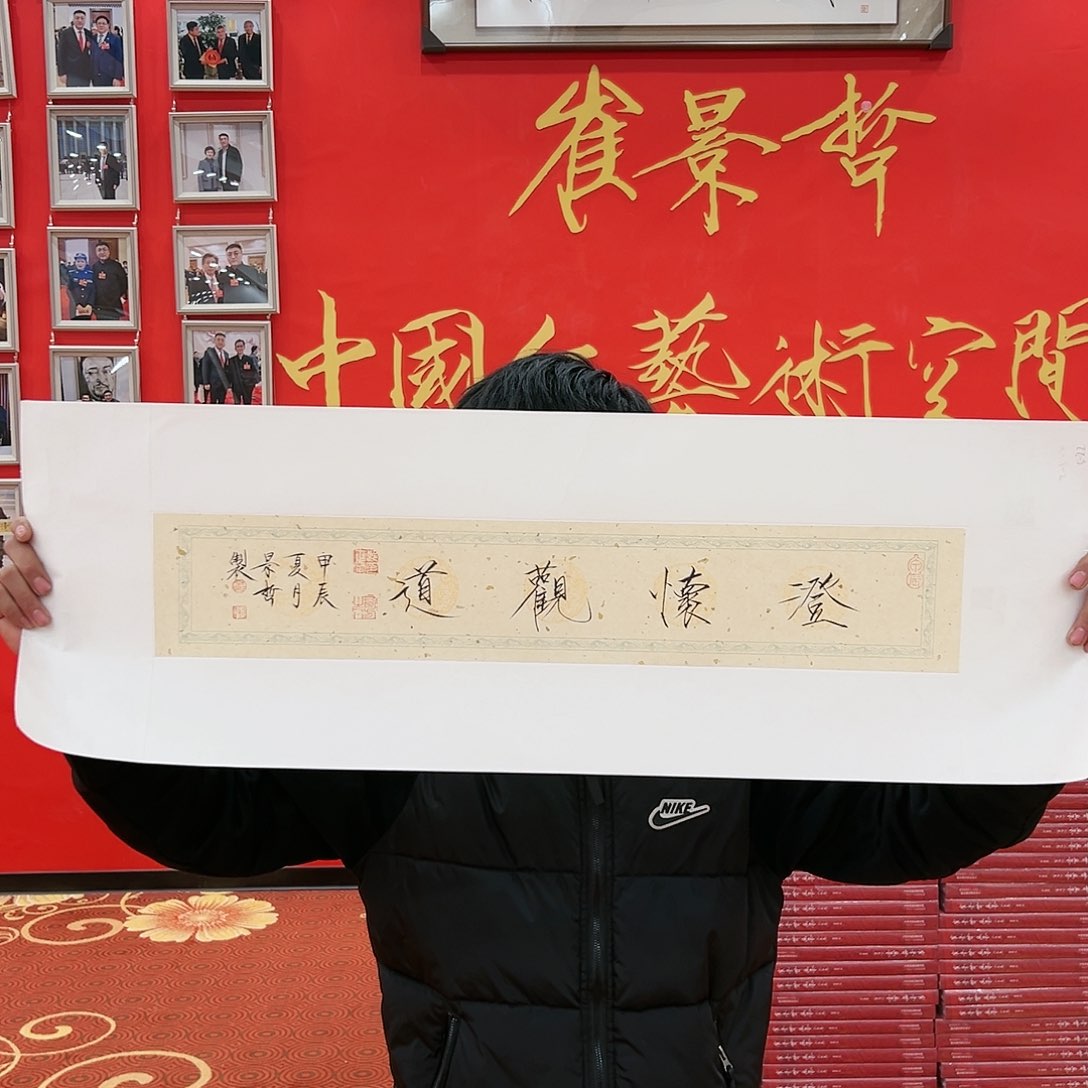 崔景哲
中國紅藝術空間
澄懷觀道
甲辰
夏月
景哲
製
NIKE